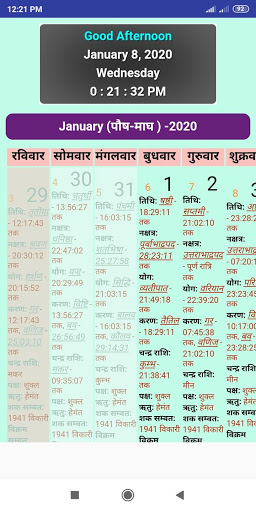 12:21 PM
Good Afternoon
January 8, 2020
Wednesday
0 : 21 : 32 PM
January (पौष-माघ ) -2020
रविवार सोमवार मंगलवार बुधवार गुरुवार शुक्र
3 29
तिथि: तृतीया
- 12:17:43
तक
नक्षत्र:
- 20:30:12
तक
योग:
20:15:52
तक
करण: गर -
12:17:43
तक, वणिज -
25:03:10
तक
चन्द्र राशि:
मकर
पक्ष: शुक्ल
ऋतु: हेमंत
शक सम्वत:
1941 विकारी
विक्रम
4 30
तिथि: चतुर्थी
- 13:56:27
तक
नक्षत्र:
धनिष्ठा -
22:47:02
तक
योग: वज्र -
20:49:57
तक
करण: विष्टि
- 13:56:27
तक, बव -
26:56:49
तक
चन्द्र राशि:
मकर -
09:35:07
तक
पक्ष: शुक्ल
ऋतु: हेमंत
शक सम्वत:
1941 विकारी
विक्रम
5 31
तिथि: पंचमी
- 16:03:15
तक
नक्षत्र:
शतभिषा -
25:27:58
तक
योग: सिद्धि
- 21:03:15
तक
करण: बालव
- 16:03:15
तक, कौलव
- 29:14:31
तक
चन्द्र राशि:
कुम्भ
पक्ष: शुक्ल
ऋतु: हेमंत
शक सम्वत:
1941 विकारी
विक्रम
6 1
तिथि: षष्ठी -
18:29:11
तक
नक्षत्र:
पूर्वाभाद्रपद -
28:23:11
तक
योग:
व्यतीपात -
21:49:18
तक
करण: तैतिल
- 18:29:11
तक
चन्द्र राशि:
कुम्भ -
21:38:41
तक
पक्ष: शुक्ल
ऋतु: हेमंत
शक सम्वत:
1941 विकारी
विक्रम
7 2
तिथि:
सप्तमी -
21:01:10
तक
नक्षत्र:
उत्तराभाद्रपद
- पूर्ण रात्रि
तक
योग: वरियान
- 22:39:20
तक
करण: गर -
07:45:38
तक, वणिज -
21:02:10
तक
चन्द्र राशि:
मीन
पक्ष: शुक्ल
ऋतु: हेमंत
शक सम्वत:
1941 विकारी
विक्रम
8
तिथि:
- 23:28:
तक
नक्षत्र:
उत्तराभाद्र
तक
योग:
- 23:28:
तक
करण: विष्टि
10:17:00
तक, बव -
23:28:2
तक
चन्द्र राशि:
मीन
पक्ष: शुक्ल
ऋतु: हेमंत
शक सम्वत:
1941 विकारी
विक्रम